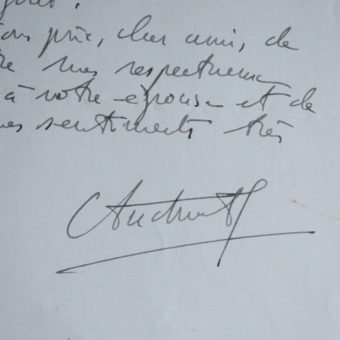 ous prie, cher ami, de
re mes respectueux
à votre épouse et de
mes sentiments très